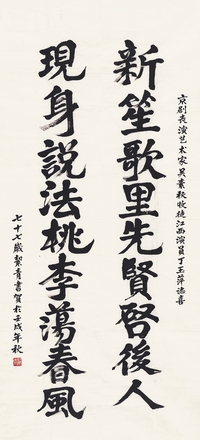 京剧表演艺术家吴素秋收徒江西演员丁玉萍志喜
新笙歌里先賢啓後人
現身說法桃李蕩春風
七十七歲絜青書賀於壬戌年秋